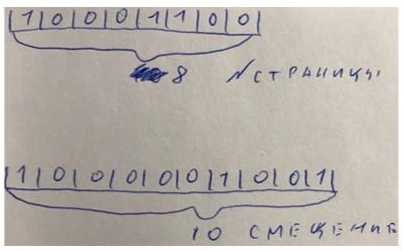 |1|0|0|0|1|1|0|0|
8 № СТРАНИЦЫ
|1|0|0|0|0|0|0|1|0|0|1|
10 СМЕЩЕНИЕ